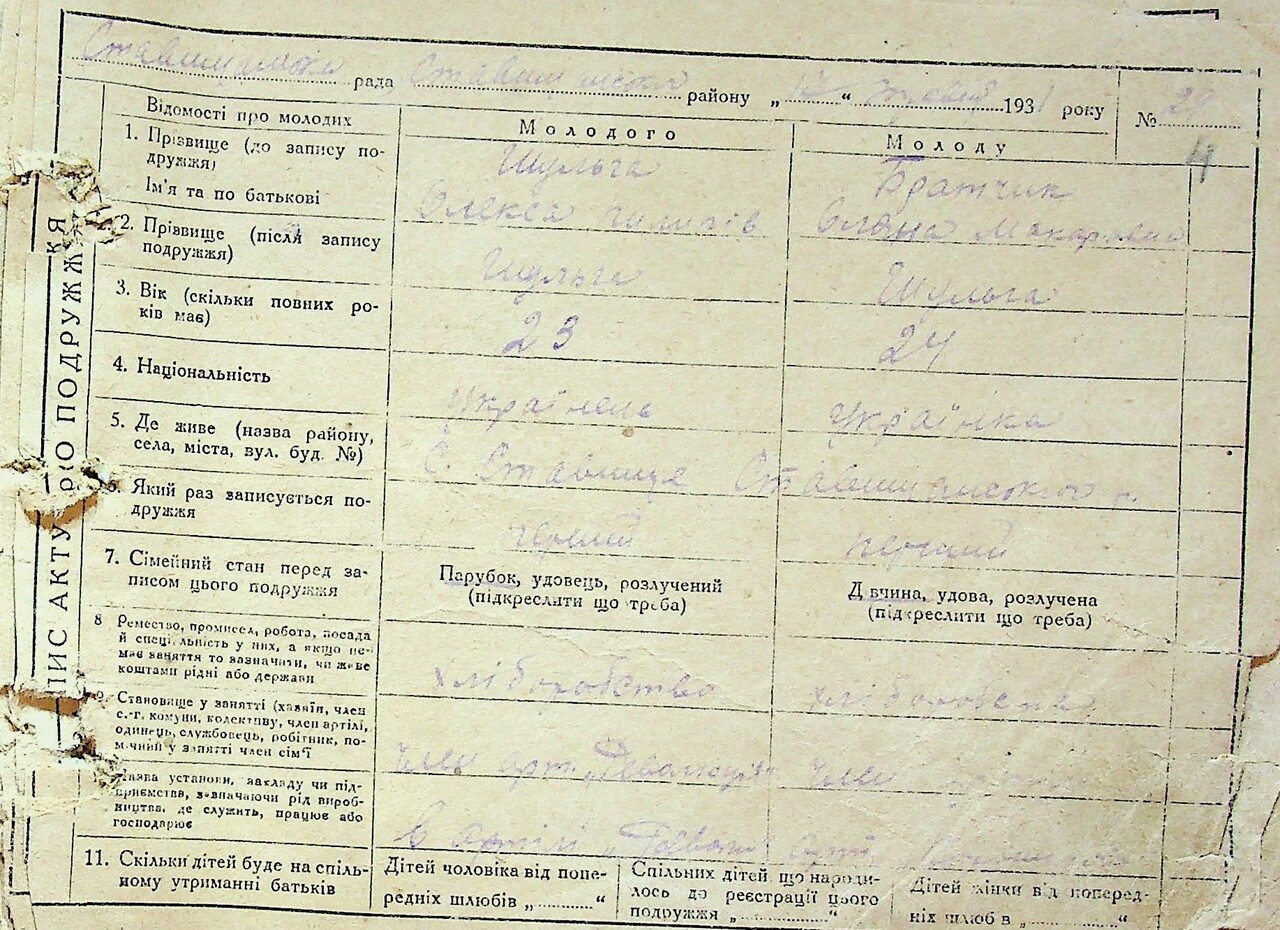 Ставищанська рада Ставищанська району „12“ травня 1931 року № 29
4
Відомості про молодих
Молодого
Молоду
1. Прізвище (до запису по-
дружжя)
Ім'я та по батькові
Шульга
Олекса Пилипів
Братчик
Оляна Макаровна
2. Прізвище (після запису
подружжя)
Шульга
Шульга
3. Вік (скільки повних ро-
ків має)
23
24
4. Національність
Українець
Українка
5. Де живе (назва району,
села, міста, вул. буд. №)
С. Ставище Ставищанського р.
6. Який раз записується по-
дружжя
первий
первий
7. Сімейний стан перед за-
писом цього подружжя
Парубок, удовець, розлучений
(підкреслити що треба)
Дівчина, удова, розлучена
(підкреслити що треба)
8 Ремество, промисел, робота, посада
й спеціяльність у них, а якщо не-
має заняття то зазначити, чи живе
коштами рідні або держави
хліборобство
хліборобство
9. Становище у занятті (хазяїн, член
с.-г. комуни, колективу, член артілі,
одинець, службовець, робітник, по-
мічний у занятті член сім'ї
член арт.
член
Назва установи, закладу чи під-
приємства, зазначаючи рід вироб-
ництва, де служить, працює або
господарює
в артілі
11. Скільки дітей буде на спіль-
ному утриманні батьків
Дітей чоловіка від попе-
редніх шлюбів „..........“
Спільних дітей що народи-
лось до реєстрації цього
подружжя „..............“
Дітей жінки від поперед-
ніх шлюбів „..............“
ПИС АКТУ ПРО ПОДРУЖЖЯ